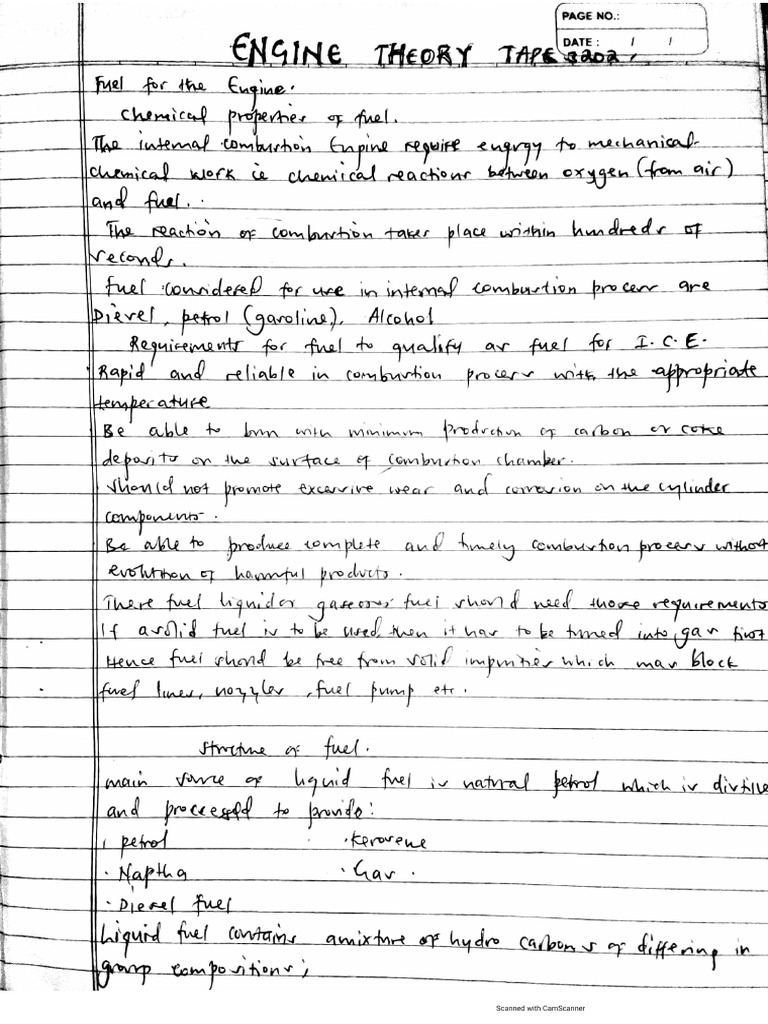 PAGE NO.:
DATE : / /
ENGINE THEORY TAPE 3202
Fuel for the Engine.
Chemical properties of fuel.
The internal combustion Engine require engrgy to mechanical
chemical work ie chemical reactions between oxygen (from air)
and fuel.
The reaction of combustion takes place within hundreds of
seconds.
Fuel considered for use in internal combustion process are
Diesel, petrol (gasoline), Alcohol
Requirements for fuel to qualify as fuel for I.C.E.
Rapid and reliable in combustion process with the appropriate
temperature
Be able to burn with minimum production of carbon or coke
deposits on the surface of combustion chamber.
Should not promote excessive wear and corrosion on the cylinder
components.
Be able to produce complete and timely combustion process without
evolution of harmful products.
There fuel liquid or gaseous fuel should need those requirements
If a solid fuel is to be used then it has to be turned into gas first
Hence fuel should be free from solid impurities which may block
fuel lines, nozzles, fuel pump etc.
Structure of fuel.
main source of liquid fuel is natural petrol which is distille
and processed to provide:
petrol · Kerosene
· Naptha · Gas .
· Diesel fuel
Liquid fuel contains a mixture of hydro carbons of differing in
group compositions;
Scanned with CamScanner